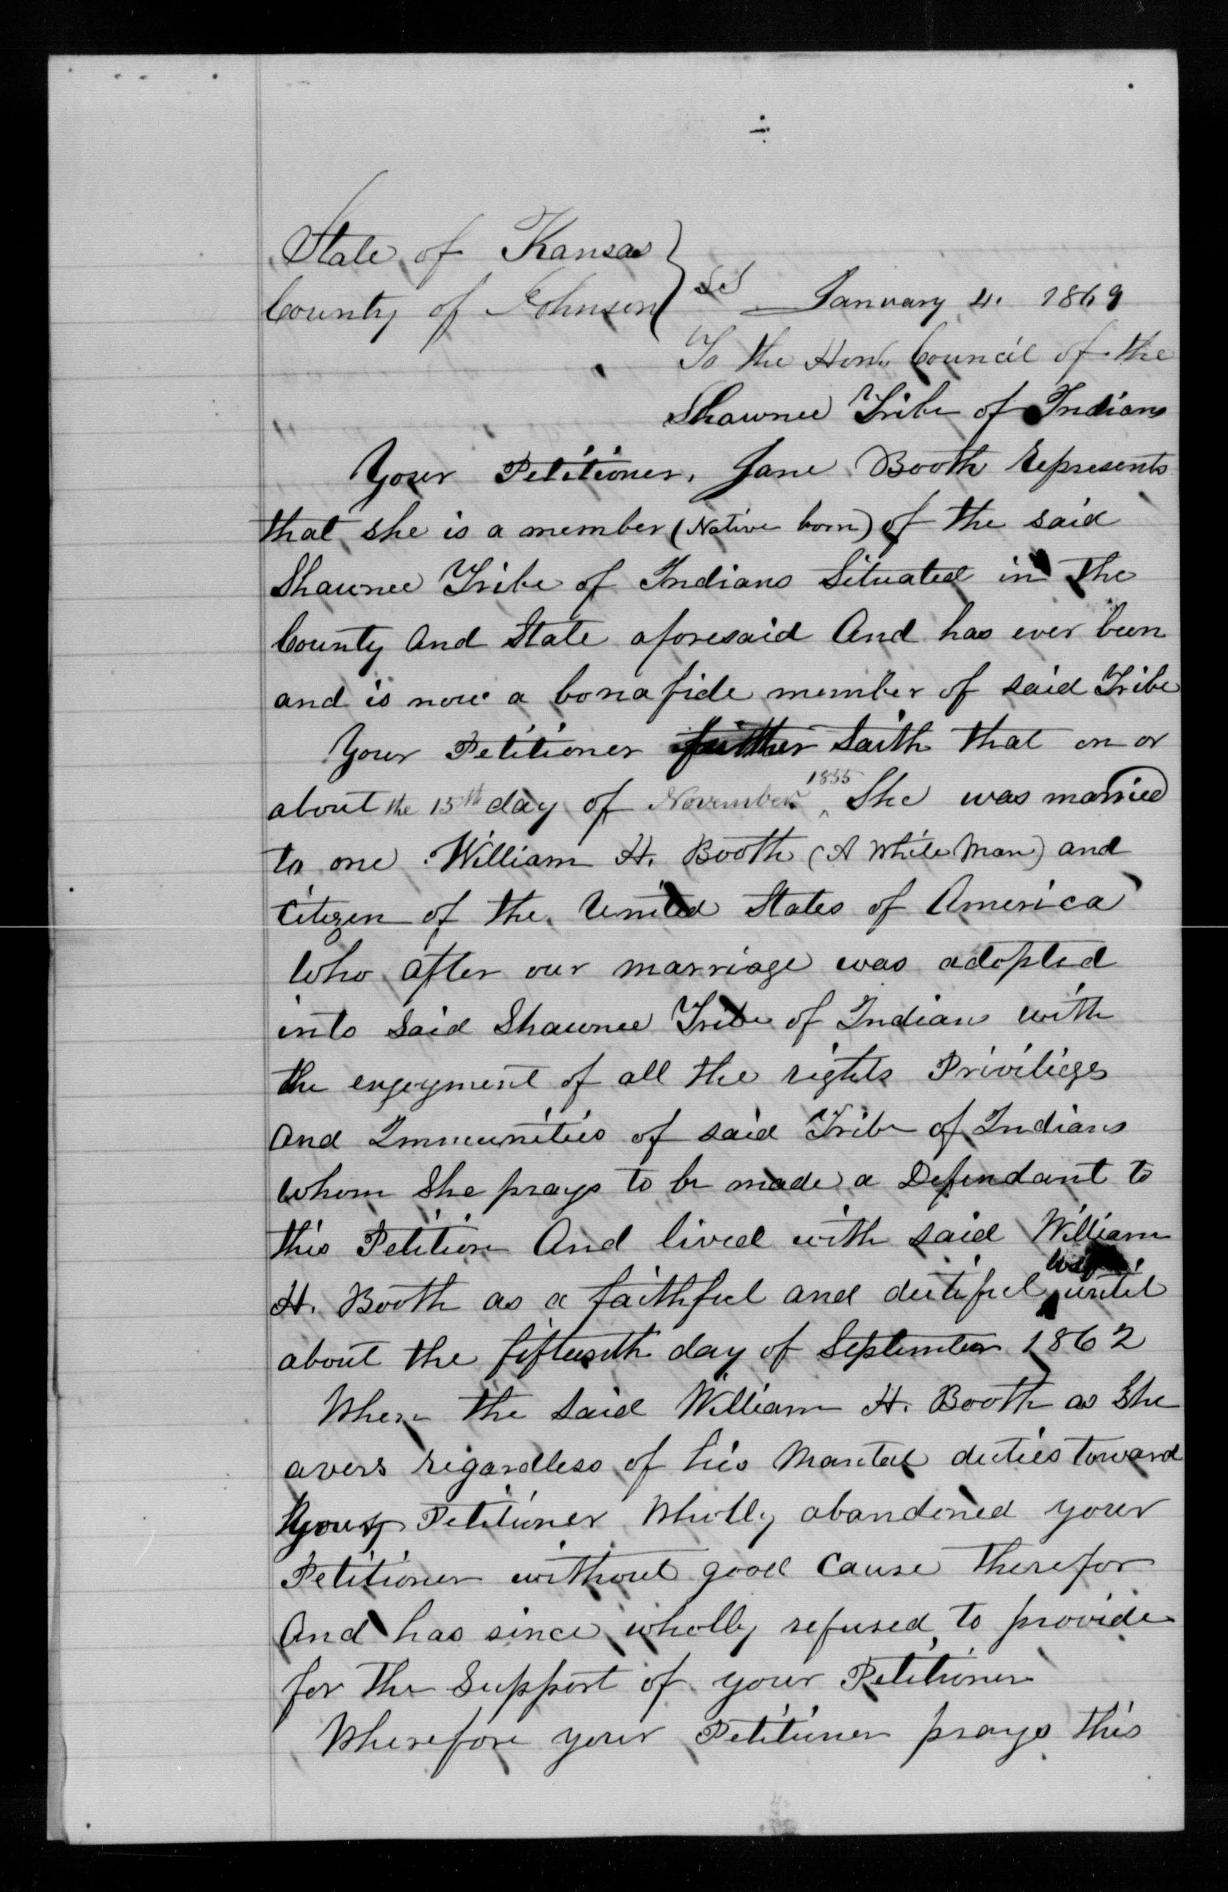 State of Kansas }
County of Johnson } Sct January 4. 1869
To the Honl. Council of the
Shawnee Tribe of Indians
Your Petitioner, Jane Booth represents
that she is a member (Native born) of the said
Shawnee Tribe of Indians Situated in the
County And State aforesaid And has ever been
and is now a bonafide member of said Tribe
Your Petitioner further Saith that on or
about the 15th day of November 1855 She was married
to one William H. Booth (A White Man) and
Citizen of the United States of America
Who after our marriage was adopted
into Said Shawnee Tribe of Indians with
the enjoyment of all the rights Priviliges
And Immunities of said Tribe of Indians
whom She prays to be made a Defendant to
this Petition And lived with said William
H. Booth as a faithful and dutiful wife until
about the fifteenth day of September 1862
When the Said William H. Booth as She
avers regardless of his Marital duties toward
Your Petitioner Wholly abandoned your
Petitioner without good Cause therefor
And has since wholly refused to provide
for the Support of your Petitioner
Wherefore your Petitioner prays this